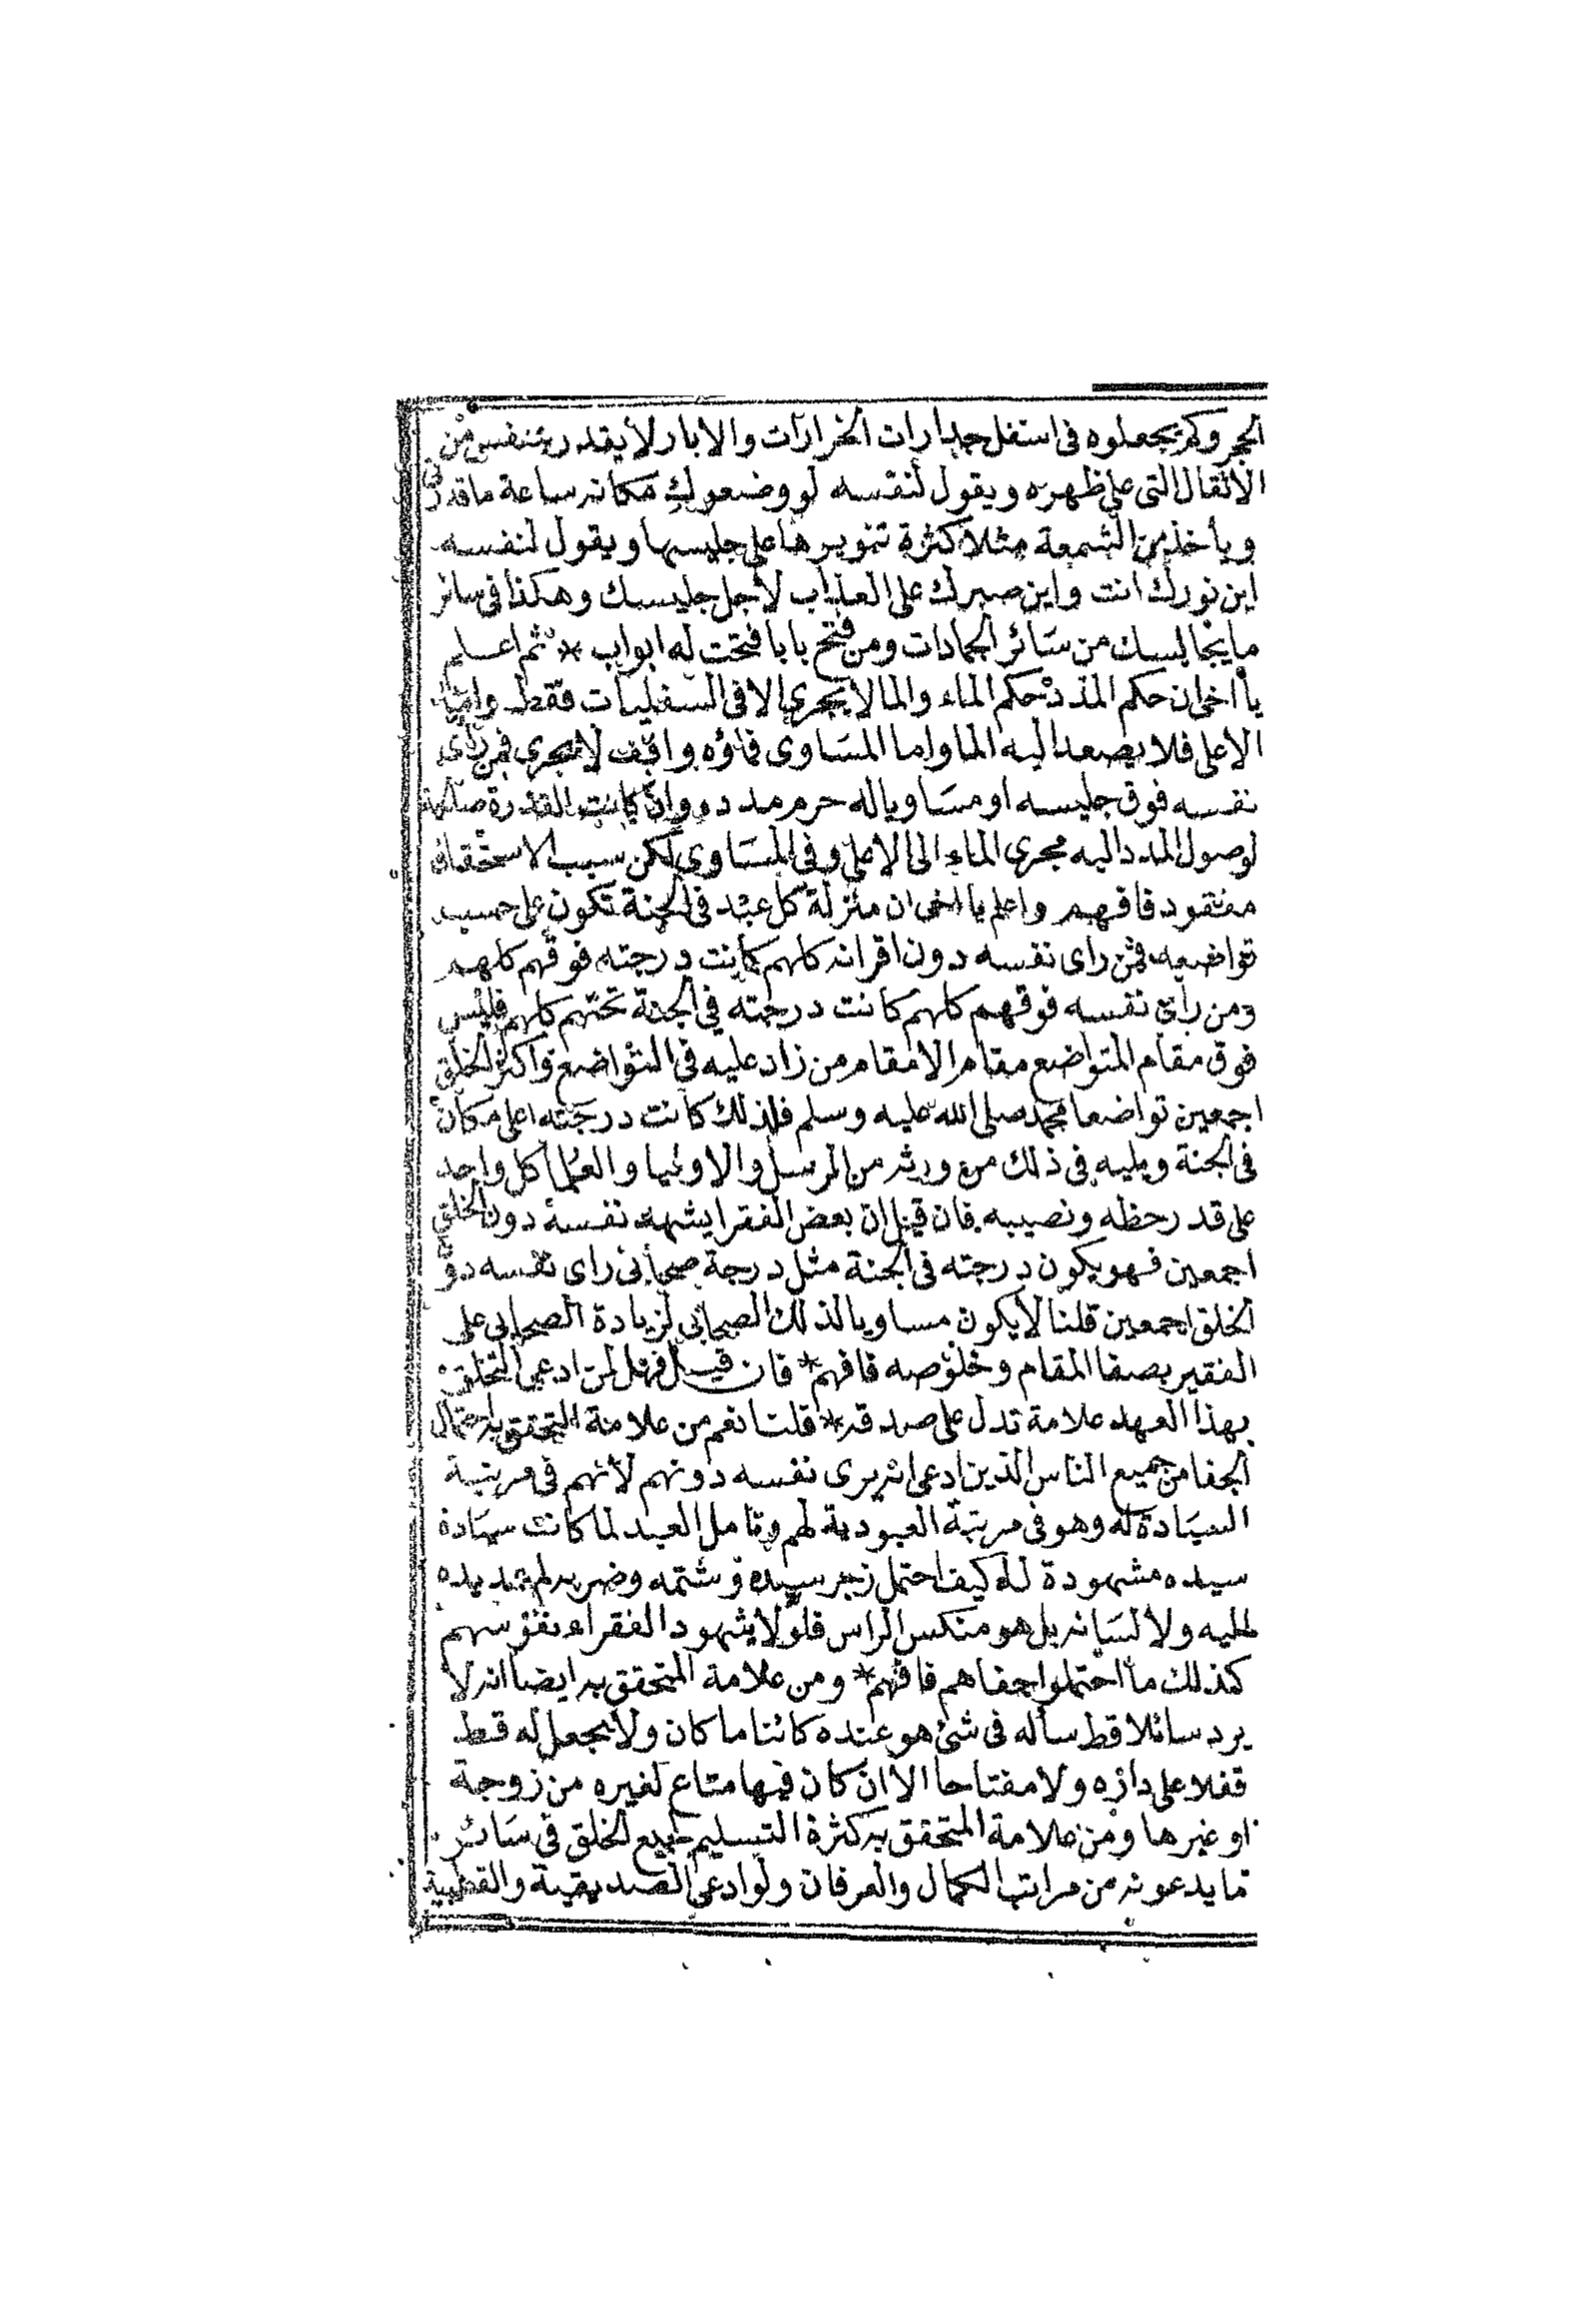 الحجر وكم يجعلوه فى اسفل جدارات الخرارات والابار لا يقدر يتنفس من
الاثقال التى على ظهره ويقول لنفسه لو وضعوك مكانه ساعة ما قدرتى
ويأخذ من الشمعة مثلا كثرة تنويرها على جليسها ويقول لنفسه
اين نورك انت واين صبرك على العذاب لاجل جليسك وهكذا فى سائر
ما يجالسك من سائر الجمادات ومن فتح بابا فتحت له ابواب * ثم اعلم
يا اخى ان حكم المدد حكم الماء والما لا يجرى الا فى السفليات فقط واما
الاعلى فلا يصعد اليه الما واما المساوى فماؤه واقف لا يجرى فمن راى
نفسه فوق جليسه او مساويا له حرم مدده وان كانت القدرة صالحة
لوصول المدد اليه مجرى الماء الى الاعلى وفى المساوى لكن سبب الاستحقاق
مفقود فافهم واعلم يا اخى ان منزلة كل عبد فى الجنة تكون على حسب
تواضعه فمن راى نفسه دون اقرانه كلهم كانت درجته فوقهم كلهم
ومن راى نفسه فوقهم كلهم كانت درجته فى الجنة تحتهم كلهم فليس
فوق مقام المتواضع مقام الا مقام من زاد عليه فى التواضع واكثر الخلق
اجمعين تواضعا محمد صلى الله عليه وسلم فلذلك كانت درجته اعلى مكان
فى الجنة ويليه فى ذلك من ورثه من الرسل والاوليا والعلما كل واحد
على قدر حظه ونصيبه فان قيل ان بعض الفقرا يشهد نفسه دون الخلق
اجمعين فهو يكون درجته فى الجنة مثل درجة صحابى راى نفسه دون
الخلق اجمعين قلنا لا يكون مساويا لذلك الصحابى لزيادة الصحابى على
الفقير بصفا المقام وخلوصه فافهم * فان قيل فهل لمن ادعى التخلق
بهذا العهد علامة تدل على صدقه * قلنا نعم من علامة التحقق به احتمال
الجفا من جميع الناس الذين ادعى انه يرى نفسه دونهم لانهم فى مرتبة
السيادة له وهو فى مرتبة العبودية لهم وتامل العبد لما كانت سيادة
سيده مشهودة له كيف احتمل زجر سيده وشتمه وضربه لم يمد يده
اليه ولا لسانه بل هو منكس الراس فلولا يشهود الفقراء نفوسهم
كذلك ما احتملوا جفاهم فافهم * ومن علامة المتحقق به ايضا انه لا
يرد سائلا قط ساله فى شئ هو عنده كائنا ما كان ولا يجعل له قط
قفلا على داره ولا مفتاحا الا ان كان فيها متاع لغيره من زوجة
او غيرها ومن علامة المتحقق به كثرة التسليم لجميع الخلق فى سائر
ما يدعونه من مراتب الكمال والعرفان ولو ادعى الصديقية والقطبية